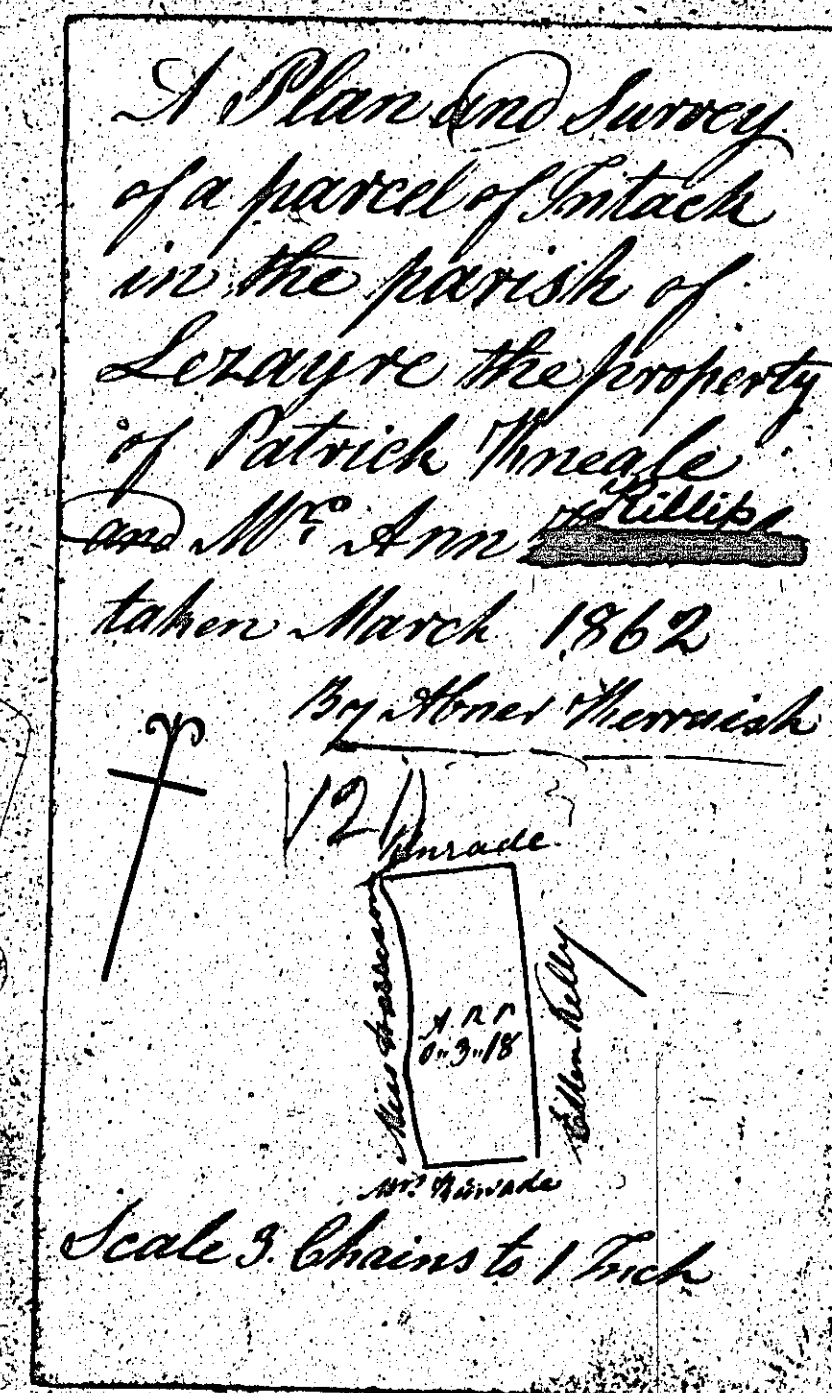 A Plan and Survey
of a parcel of Intack
in the parish of
Lezayre the property
of Patrick Kneale
and Mrs Ann Killip
taken March 1862
By Abner Kerruish
121
Kinrade
Miss
A R P
0 ,, 3 ,, 18
Kelly
Mrs Kinrade
Scale 3. Chains to 1 Inch